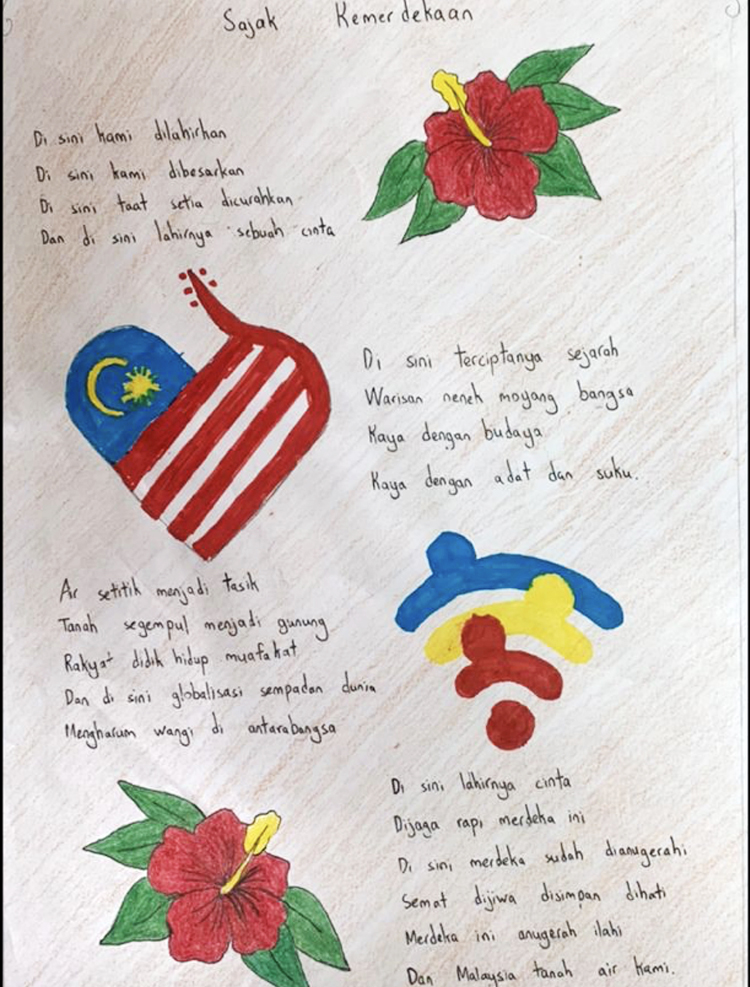 Sajak Kemerdekaan
Di sini kami dilahirkan
Di sini kami dibesarkan
Di sini taat setia dicurahkan
Dan di sini lahirnya sebuah cinta
Di sini terciptanya sejarah
Warisan nenek moyang bangsa
Kaya dengan budaya
Kaya dengan adat dan suku.
Air setitik menjadi tasik
Tanah segempul menjadi gunung
Rakyat didik hidup muafakat
Dan di sini globalisasi sempadan dunia
Mengharum wangi di antarabangsa
Di sini lahirnya cinta
Dijaga rapi merdeka ini
Di sini merdeka sudah dianugerahi
Semat dijiwa disimpan dihati
Merdeka ini anugerah ilahi
Dan Malaysia tanah air kami.